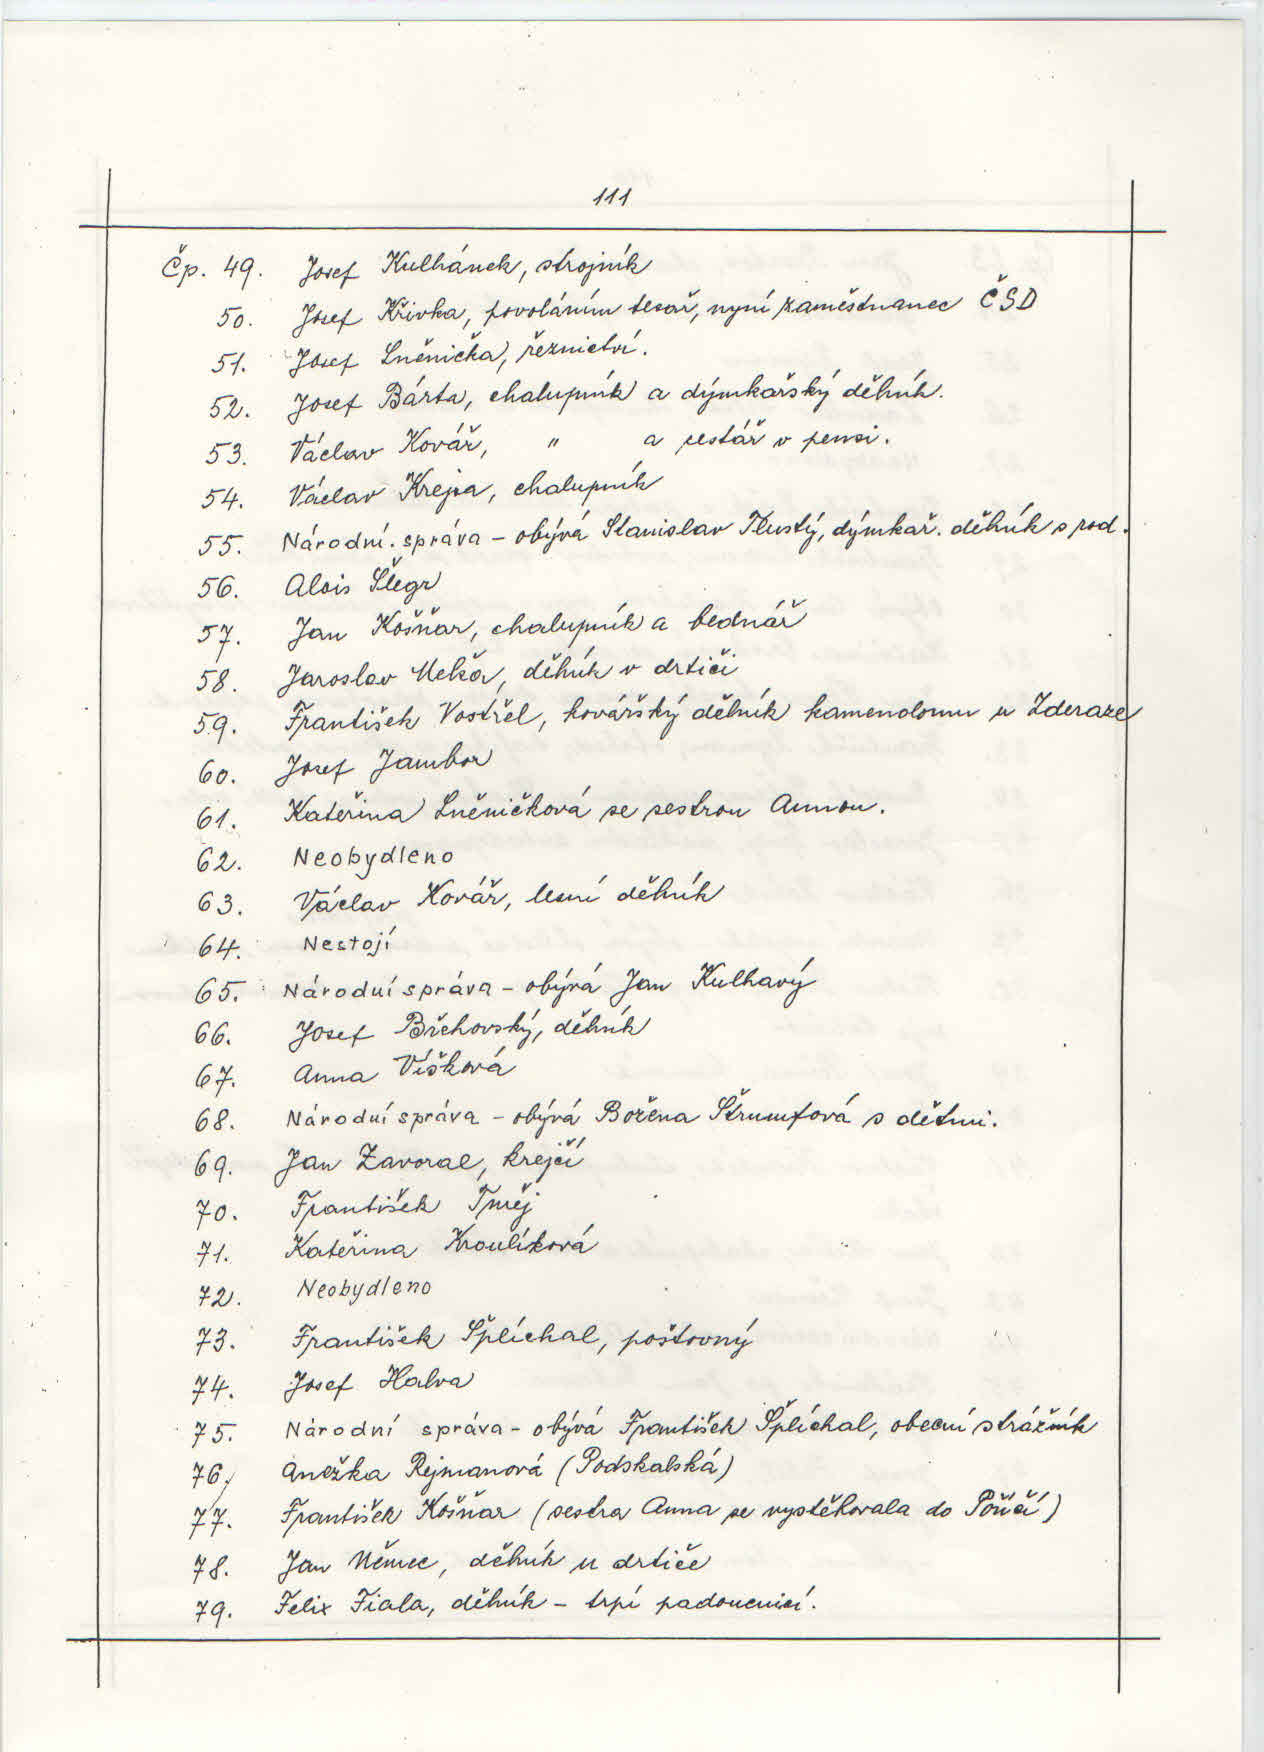 111
Čp. 49. Josef Kulhánek, strojník
50. Josef Křivka, povoláním tesař, nyní zaměstnanec ČSD
51. Josef Lněnička, řeznictví.
52. Josef Bárta, chalupník a dýmkařský dělník.
53. Václav Kovář, " a cestář v pensi.
54. Václav Krejsa, chalupník
55. Národní. správa - obývá Stanislav Tlustý, dýmkař. dělník s rod.
56. Alois Šlegr
57. Jan Košňar, chalupník a bednář
58. Jaroslav Mekša, dělník v drtiči
59. František Vostřel, kovářský dělník kamenolomu u Zderaze
60. Josef Jambor
61. Kateřina Lněničková se sestrou Annou.
62. Neobydleno
63. Václav Kovář, lesní dělník
64. Nestojí
65. Národní správa - obývá Jan Kulhavý
66. Josef Břehovský, dělník
67. Anna Víšková
68. Národní správa - obývá Božena Štrumfová s dětmi.
69. Jan Zavoral, krejčí
70. František Tměj
71. Kateřina Kroulíková
72. Neobydleno
73. František Šplíchal, poštovný
74. Josef Halva
75. Národní správa - obývá František Šplíchal, obecní strážník
76. Anežka Rejmanová (Podskalská)
77. František Košňar (sestra Anna se vystěhovala do Poříčí)
78. Jan Němec, dělník u drtiče
79. Felix Fiala, dělník - trpí padoucnicí.